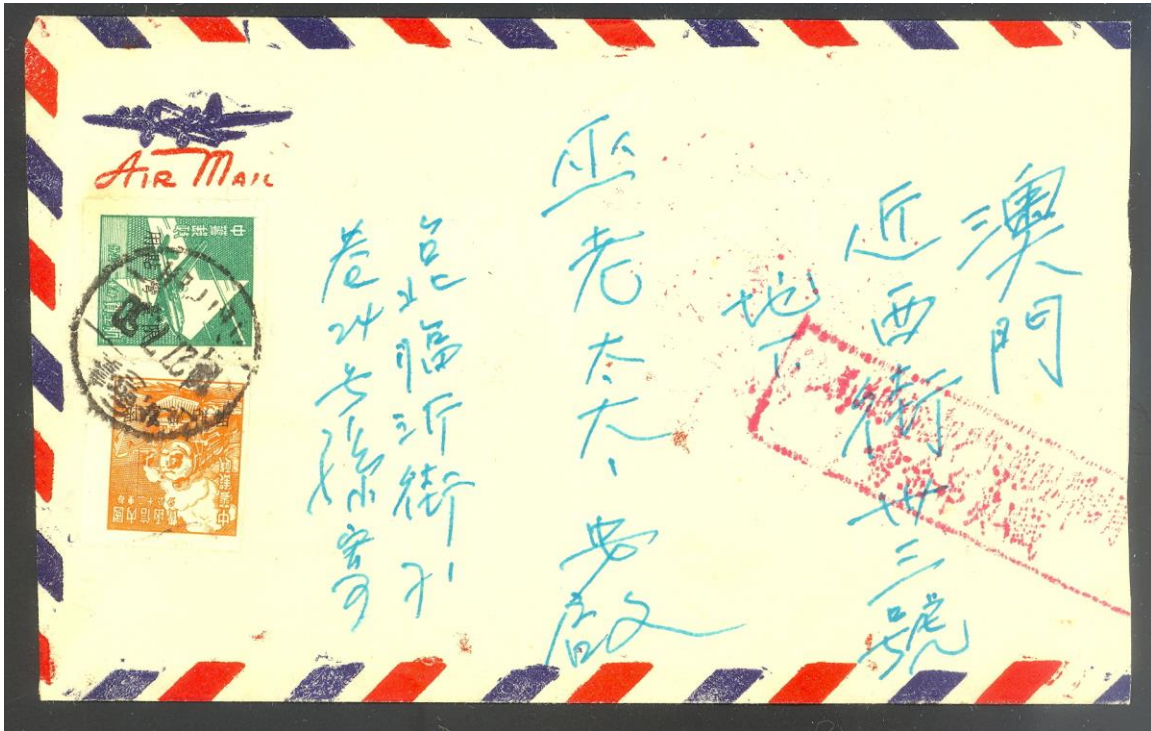 AIR MAIL
澳門
近西街卅三號
地下
巫老太太安啟
台北臨沂街71
巷24号孫寄
中華郵政
國內信函
中華郵政